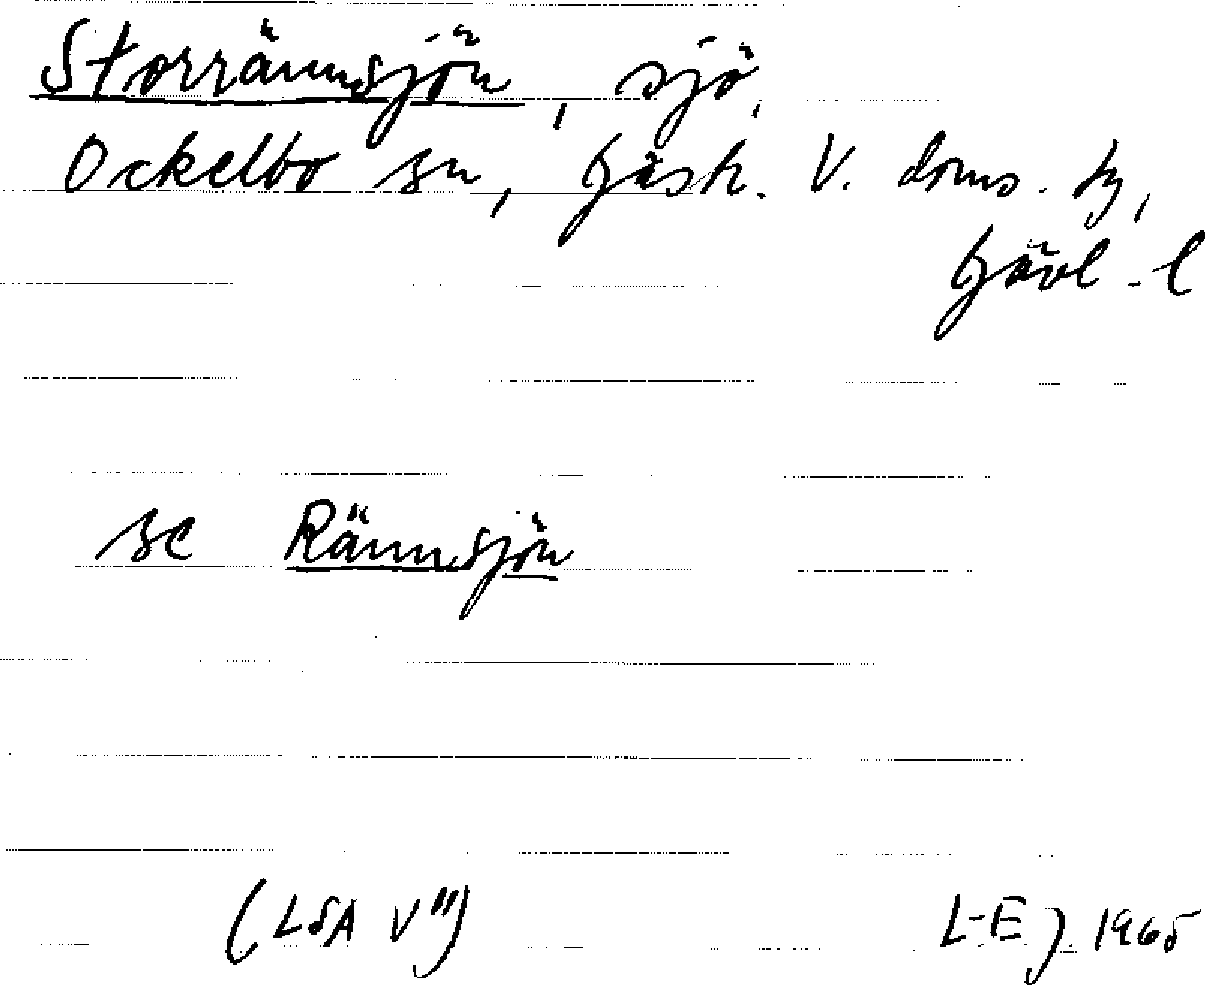 Storrännsjön, sjö,
Ockelbo sn, Gästr. V. doms. tg,
Gävl. l
se Rännsjön
(LSA V")
L-E J. 1965